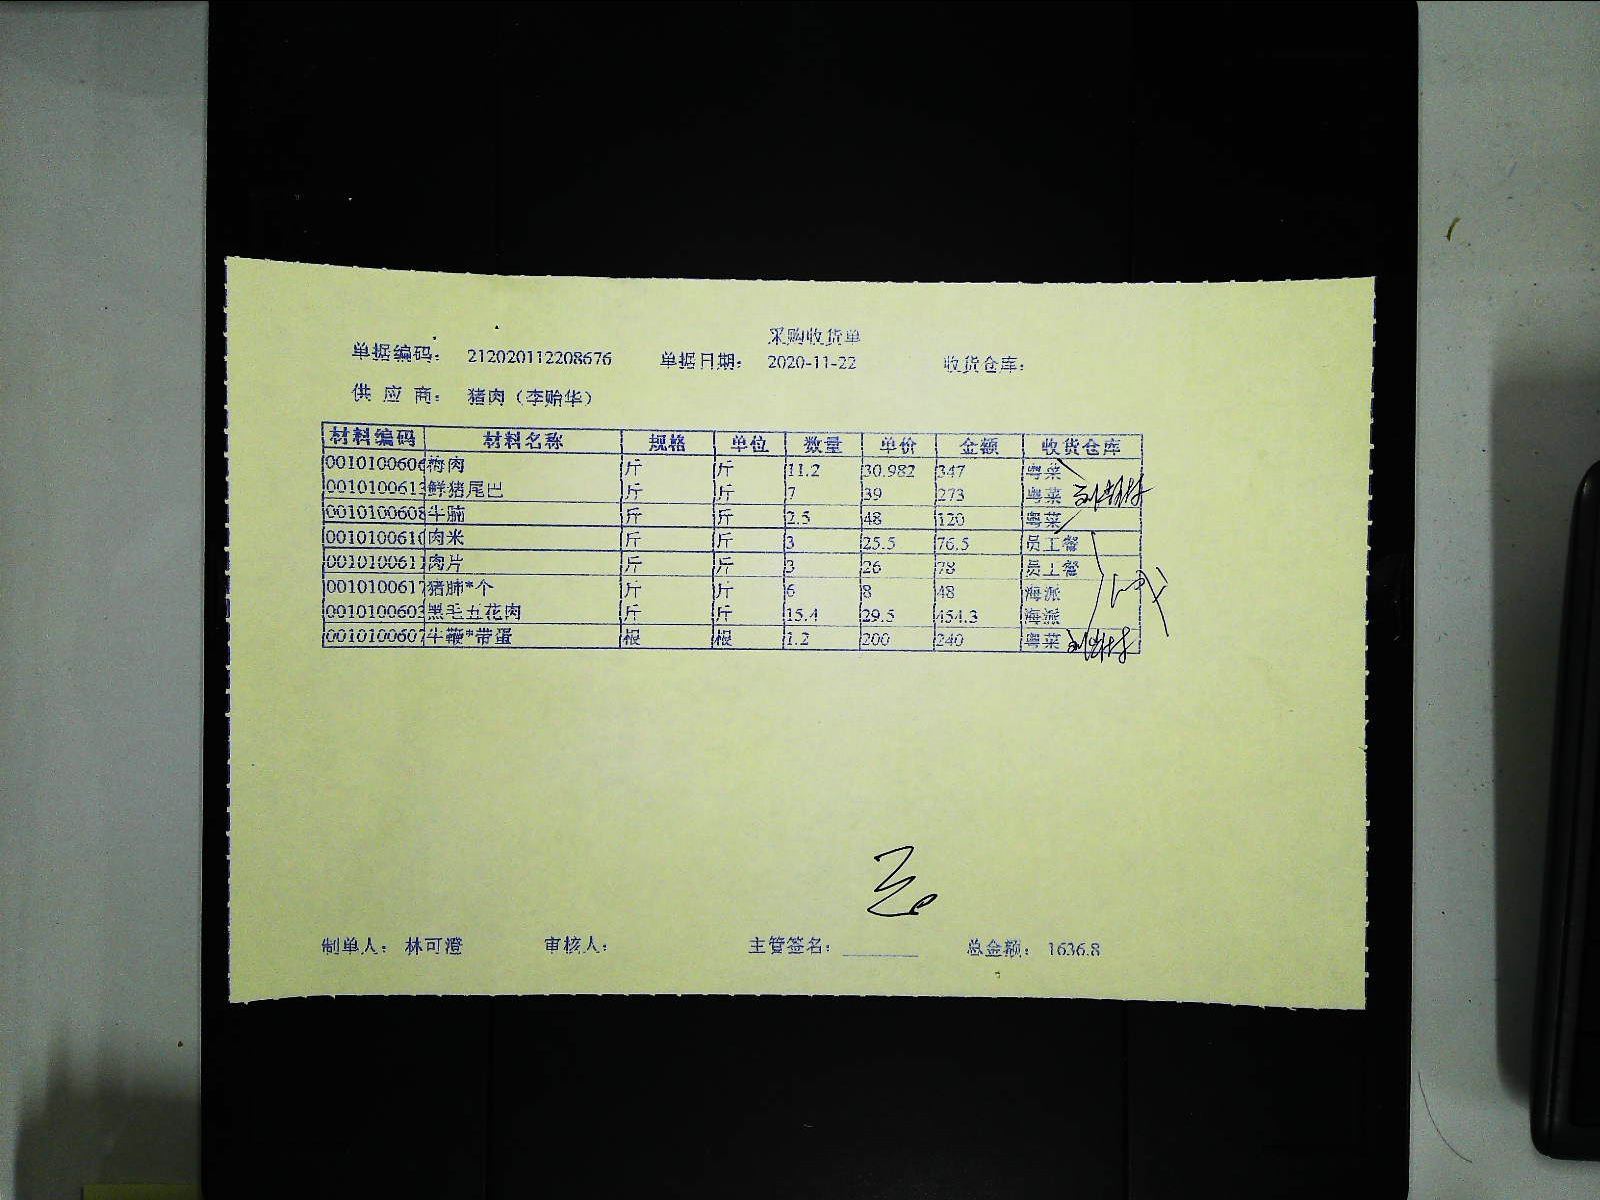 采购收货单
单据编码： 212020112208676 单据日期： 2020-11-22 收货仓库：
供 应 商： 猪肉（李贻华）
材料编码 材料名称 规格 单位 数量 单价 金额 收货仓库
0010100606 梅肉 斤 斤 11.2 30.982 347 粤菜
0010100613 鲜猪尾巴 斤 斤 7 39 273 粤菜
0010100608 牛腩 斤 斤 2.5 48 120 粤菜
0010100610 肉米 斤 斤 3 25.5 76.5 员工餐
0010100611 肉片 斤 斤 3 26 78 员工餐
0010100617 猪肺*个 斤 斤 6 8 48 海派
0010100603 黑毛五花肉 斤 斤 15.4 29.5 454.3 海派
0010100607 牛鞭*带蛋 根 根 1.2 200 240 粤菜
制单人： 林可澄 审核人： 主管签名： 总金额： 1636.8